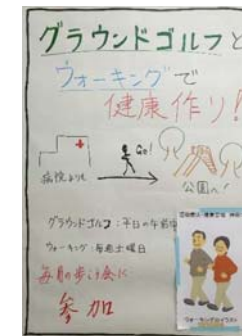 グラウンドゴルフと
ウォーキングで
健康作り!
Go!
病院よりも
公園へ!
グラウンドゴルフ:平日の午前中
ウォーキング:毎週土曜日
毎月の歩こ会に
参加
ウォーキングのイラスト